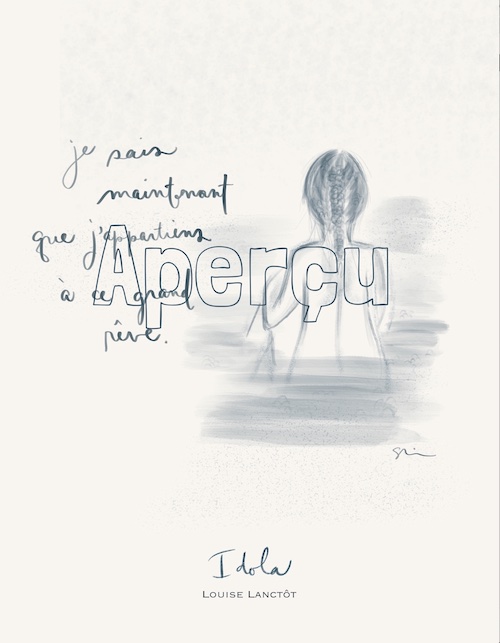 je sais
maintenant
que j'appartiens
à ce grand
rêve.
Aperçu
Idola
Louise Lanctôt